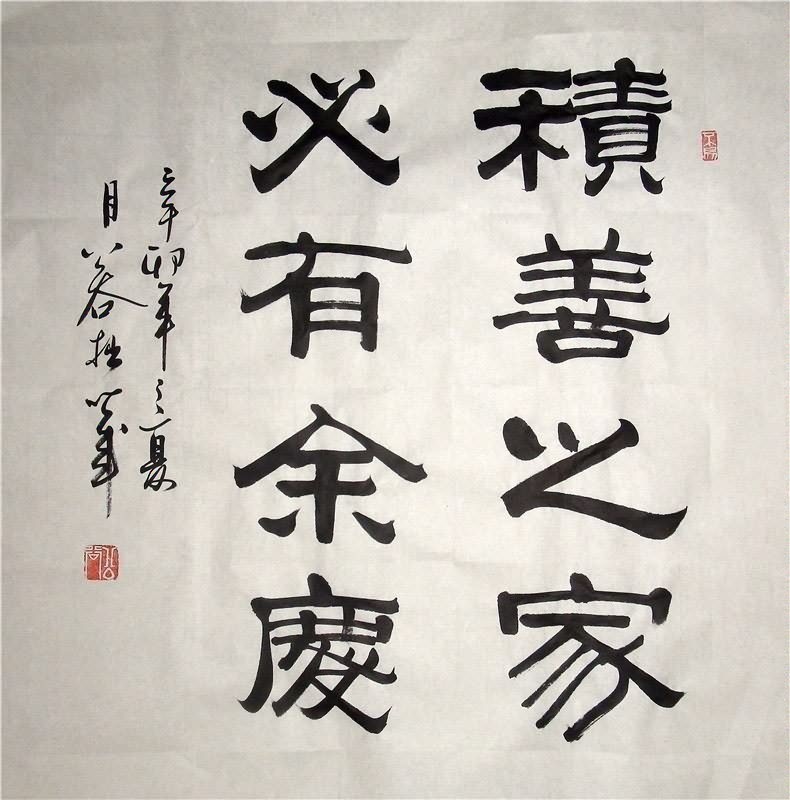 積善之家
必有余慶
辛卯年之夏
月容拙筆